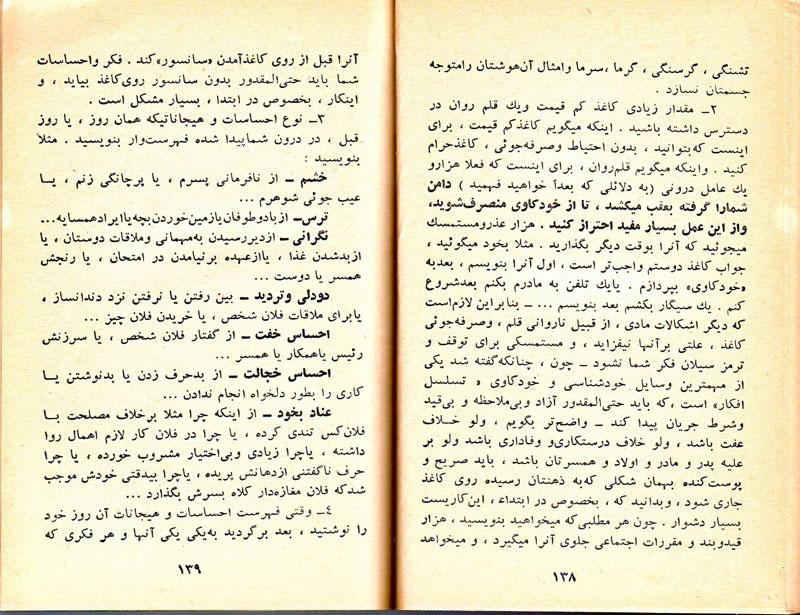 تشنگی ، گرسنگی ، گرما ، سرما وامثال آن هوشتان رامتوجه
جسمتان نسازد .
۲ـ مقدار زیادی کاغذ کم قیمت ویك قلم روان در
دسترس داشته باشید . اینکه میگویم کاغذکم قیمت ، برای
اینست که بتوانید ، بدون احتیاط وصرفه‌جوئی ، کاغذحرام
کنید . واینکه میگویم قلم‌روان ، برای اینست که فعلا هزارو
یك عامل درونی (به دلائلی که بعداً خواهید فهمید ) دامن
شمارا گرفته بعقب میکشد ، تا از خودکاوی منصرف‌شوید،
واز این عمل بسیار مفید احتراز کنید . هزار عذرومستمسك
میجوئید که آنرا بوقت دیگر بگذارید . مثلا بخود میگوئید ،
جواب کاغذ دوستم واجب‌تر است ، اول آنرا بنویسم ، بعدبه
«خودکاوی» بپردازم . یایك تلفن به مادرم بکنم بعدشروع
کنم . یك سیگار بکشم بعد بنویسم ... ــ بنابراین لازم‌است
که دیگر اشکالات مادی ، از قبیل ناروانی قلم ، وصرفه‌جوئی
کاغذ ، علتی برآنها نیفزاید ، و مستمسکی برای توقف و
ترمز سیلان فکر شما نشود ــ چون ، چنانکه‌گفته شد یکی
از مهمترین وسایل خودشناسی و خودکاوی « تسلسل
افکار» است ،که باید حتی‌المقدور آزاد وبی‌ملاحظه و بی‌قید
وشرط جریان پیدا کند ــ واضح‌تر بگویم ، ولو خلاف
عفت باشد ، ولو خلاف درستکاری‌و وفاداری باشد ولو بر
علیه پدر و مادر و اولاد و همسرتان باشد ، باید صریح و
پوست‌کنده بهمان شکلی که‌به ذهنتان رسیده روی کاغذ
جاری شود ، وبدانید که ، بخصوص در ابتداء ، این‌کاریست
بسیار دشوار . چون هر مطلبی‌که میخواهید بنویسید ، هزار
قیدوبند و مقررات اجتماعی جلوی آنرا میگیرد ، و میخواهد
۱۳۸
آنرا قبل از روی کاغذآمدن «سانسور»کند . فکر واحساسات
شما باید حتی‌المقدور بدون سانسور روی‌کاغذ بیاید ، و
اینکار ، بخصوص در ابتدا ، بسیار مشکل است .
۳ـ نوع احساسات و هیجاناتیکه همان روز ، یا روز
قبل ، در درون شماپیدا شده فهرست‌وار بنویسید . مثلا
بنویسید :
خشم ــ از نافرمانی پسرم ، یا پرچانگی زنم ، یا
عیب جوئی شوهرم ...
ترس‌ــ ازبادوطوفان‌یازمین‌خوردن‌بچه‌یاایرادهمسایه...
نگرانی ــ ازدیررسیدن به‌مهمانی وملاقات دوستان ، یا
ازبدشدن غذا ، یاازعهده برنیامدن در امتحان ، یا رنجش
همسر یا دوست ...
دودلی وتردید ــ بین رفتن یا نرفتن نزد دندانساز ،
یابرای ملاقات فلان شخص ، یا خریدن فلان چیز ...
احساس خفت ــ از گفتار فلان شخص ، یا سرزنش
رئیس یاهمکار یا همسر ...
احساس خجالت ــ از بدحرف زدن یا بدنوشتن یا
کاری را بطور دلخواه انجام ندادن ...
عناد بخود ــ از اینکه چرا مثلا برخلاف مصلحت با
فلان‌کس تندی کرده ، یا چرا در فلان کار لازم اهمال روا
داشته ، یاچرا زیادی وبی‌اختیار مشروب خورده ، یا چرا
حرف ناگفتنی ازدهانش پریده ، یاچرا بیدقتی خودش موجب
شدکه فلان مغازه‌دار کلاه بسرش بگذارد ...
٤ـ وقتی فهرست احساسات و هیجانات آن روز خود
را نوشتید ، بعد برگردید به‌یکی یکی آنها و هر فکری که
۱۳۹